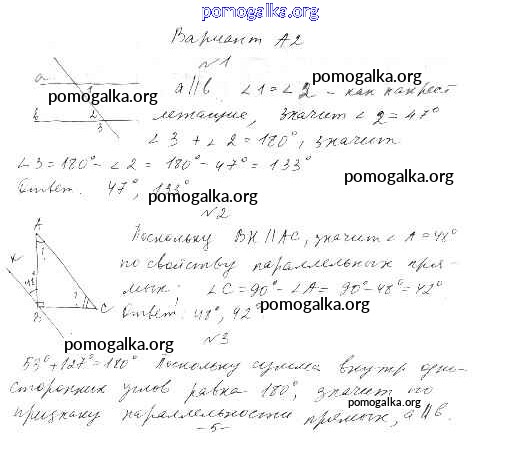 pomogalka.org
Вариант А2
№1
a
a||b ∠1=∠2 - как накрест
pomogalka.org
pomogalka.org
1
b
2
3
лежащие, значит ∠2=47°
∠3+∠2=180°, значит
∠3=180°-∠2=180°-47°=133°
pomogalka.org
Ответ: 47°, 133°
pomogalka.org
№2
A
Поскольку BK||AC, значит ∠A=48°
по свойству параллельных пря-
мых. ∠C=90°-∠A=90°-48°=42°
K
48°
?
?
B
C
Ответ: 48°, 42°
pomogalka.org
№3
pomogalka.org
53°+127°=180° Поскольку сумма внутр одно-
сторонних углов равна 180°, значит по
pomogalka.org
признаку параллельности прямых, a||b.
-5-